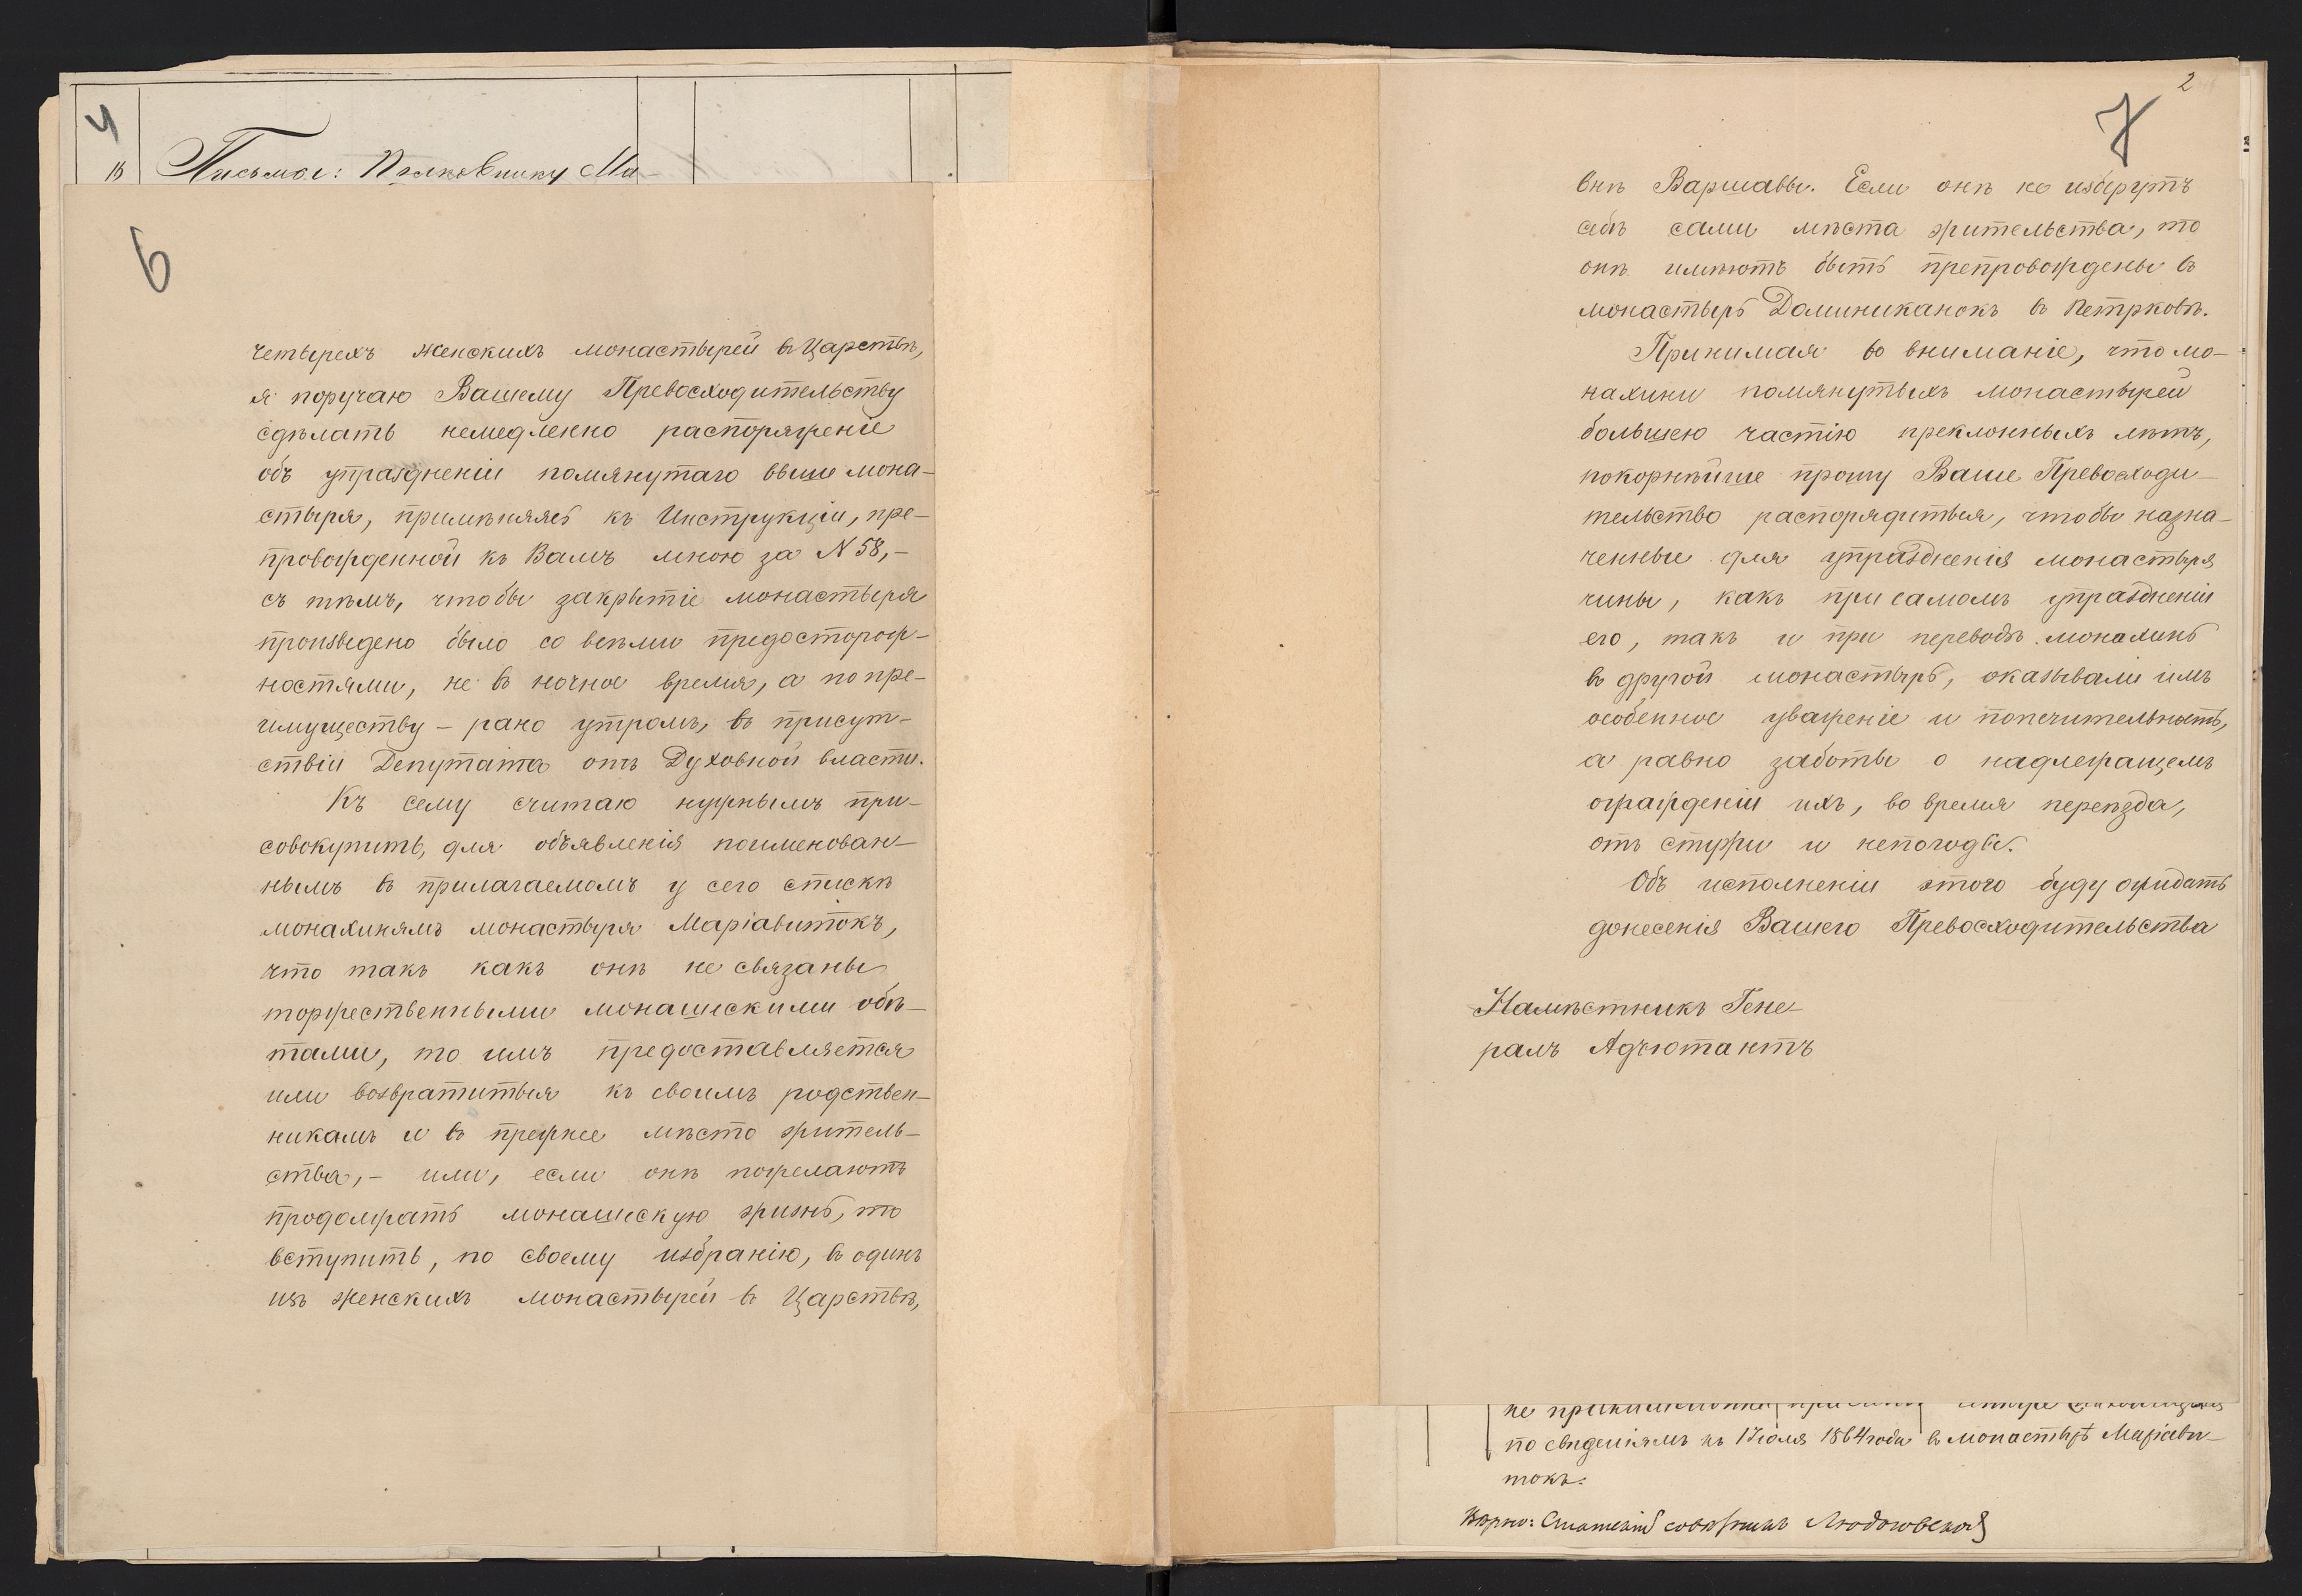 4
Письмо: Полковнику Ма-
6
четырехъ женскихъ монастырей въ Царствѣ,
я поручаю Вашему Превосходительству
сдѣлать немедленно распоряженіе
объ упраздненіи помянутаго выше мона-
стыря, примѣняясь къ Инструкціи, пре-
провожденной къ Вамъ мною за N 58,-
съ тѣмъ, чтобы закрытіе монастыря
произведено было со всѣми предосторож-
ностями, не въ ночное время, а по пре-
имуществу - рано утромъ, въ присут-
ствіи Депутата отъ Духовной власти.
Къ сему считаю нужнымъ при-
совокупить, для объявленія поименован-
нымъ въ прилагаемомъ у сего спискѣ
монахинямъ монастыря Маріавитокъ,
что такъ какъ онѣ не связаны
торжественными монашескими обѣ-
тами, то имъ предоставляется
или возвратиться къ своимъ родствен-
никамъ и въ прежнее мѣсто житель-
ства,- или, если онѣ пожелаютъ
продолжать монашескую жизнь, то
вступить, по своему избранію, въ одинъ
изъ женскихъ монастырей въ Царствѣ,
2
7
внѣ Варшавы. Если онѣ не изберутъ
себѣ сами мѣста жительства, то
онѣ имѣютъ быть препровождены въ
монастырь Доминиканокъ въ Петрковѣ.
Принимая во вниманіе, что мо-
нахини помянутыхъ монастырей
большею частію преклонныхъ лѣтъ,
покорнѣйше прошу Ваше Превосходи-
тельство распорядиться, чтобы назна-
ченные для упраздненія монастыря
чины, какъ при самомъ упраздненіи
его, такъ и при переводѣ монахинь
въ другой монастырь, оказывали имъ
особенное уваженіе и попечительность,
а равно заботы о надлежащемъ
огражденіи ихъ, во время переѣзда,
отъ стужи и непогоды.
Объ исполненіи этого буду ожидать
донесенія Вашего Превосходительства
Намѣстникъ Гене-
ралъ Адъютантъ
не
по свѣдѣніямъ къ 1 Іюля 1864 года въ монастырѣ Маріави-
токъ.
Вѣрно: Статскій совѣтникъ